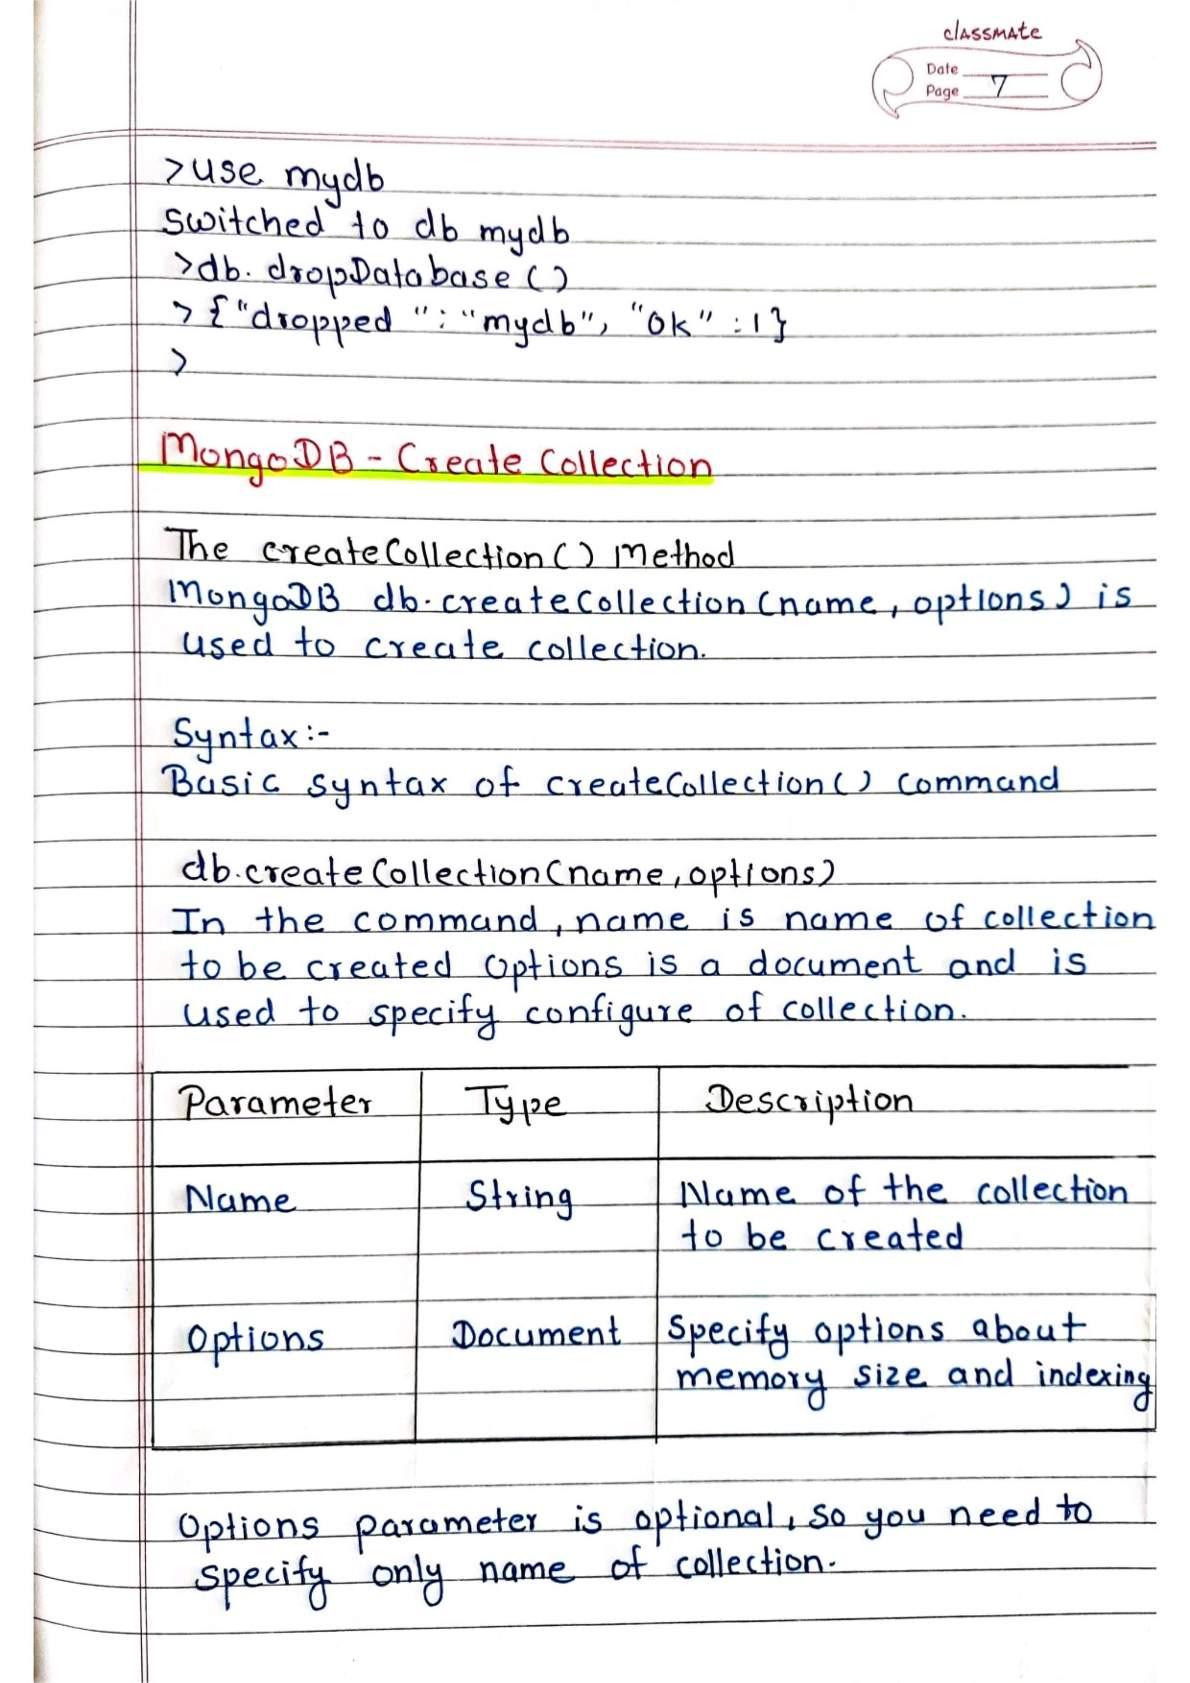 classmate
Date
Page 7
>use mydb
switched to db mydb
>db.dropDatabase()
>{"dropped":"mydb", "ok":1}
>
MongoDB - Create Collection
The createCollection() Method
MongoDB db.createCollection(name, options) is
used to create collection.
Syntax:-
Basic syntax of createCollection() command
db.createCollection(name, options)
In the command, name is name of collection
to be created options is a document and is
used to specify configure of collection.
Parameter Type Description
Name String Name of the collection
to be created
Options Document Specify options about
memory size and indexing
Options parameter is optional, so you need to
specify only name of collection.